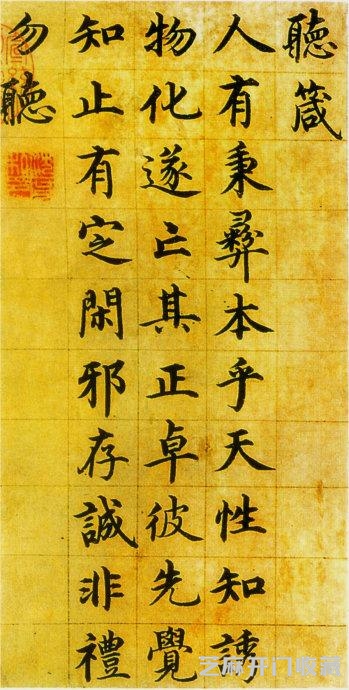 聽箴
人有秉彝本乎天性知誘
物化遂亡其正卓彼先覺
知止有定閑邪存誠非禮
勿聽
芝麻开门收藏